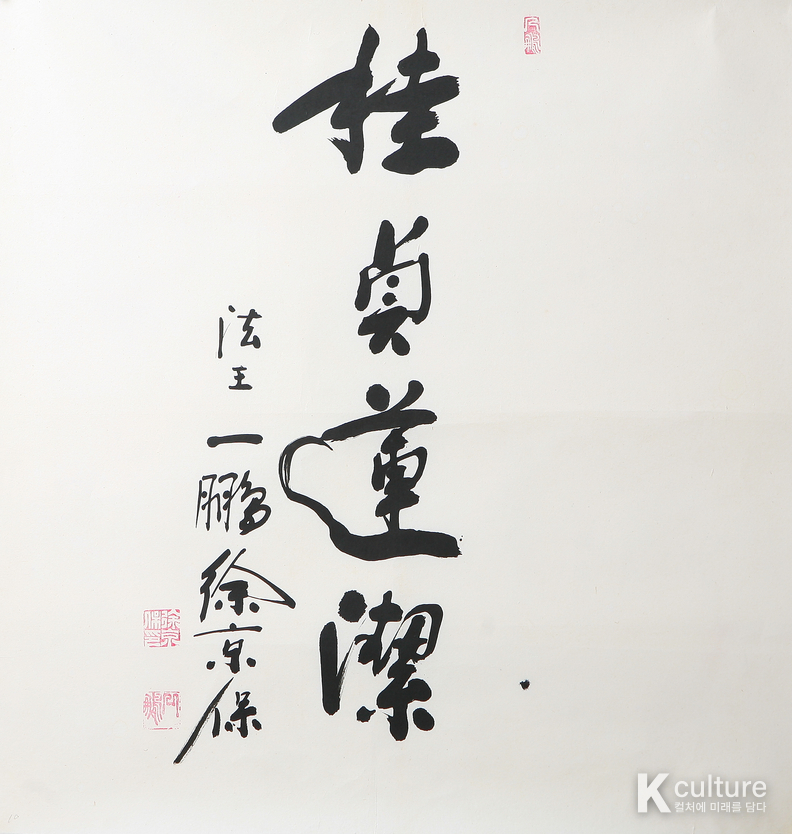 桂貞蓮潔
法王 一鵬 徐京保
K culture
컬처에 미래를 담다